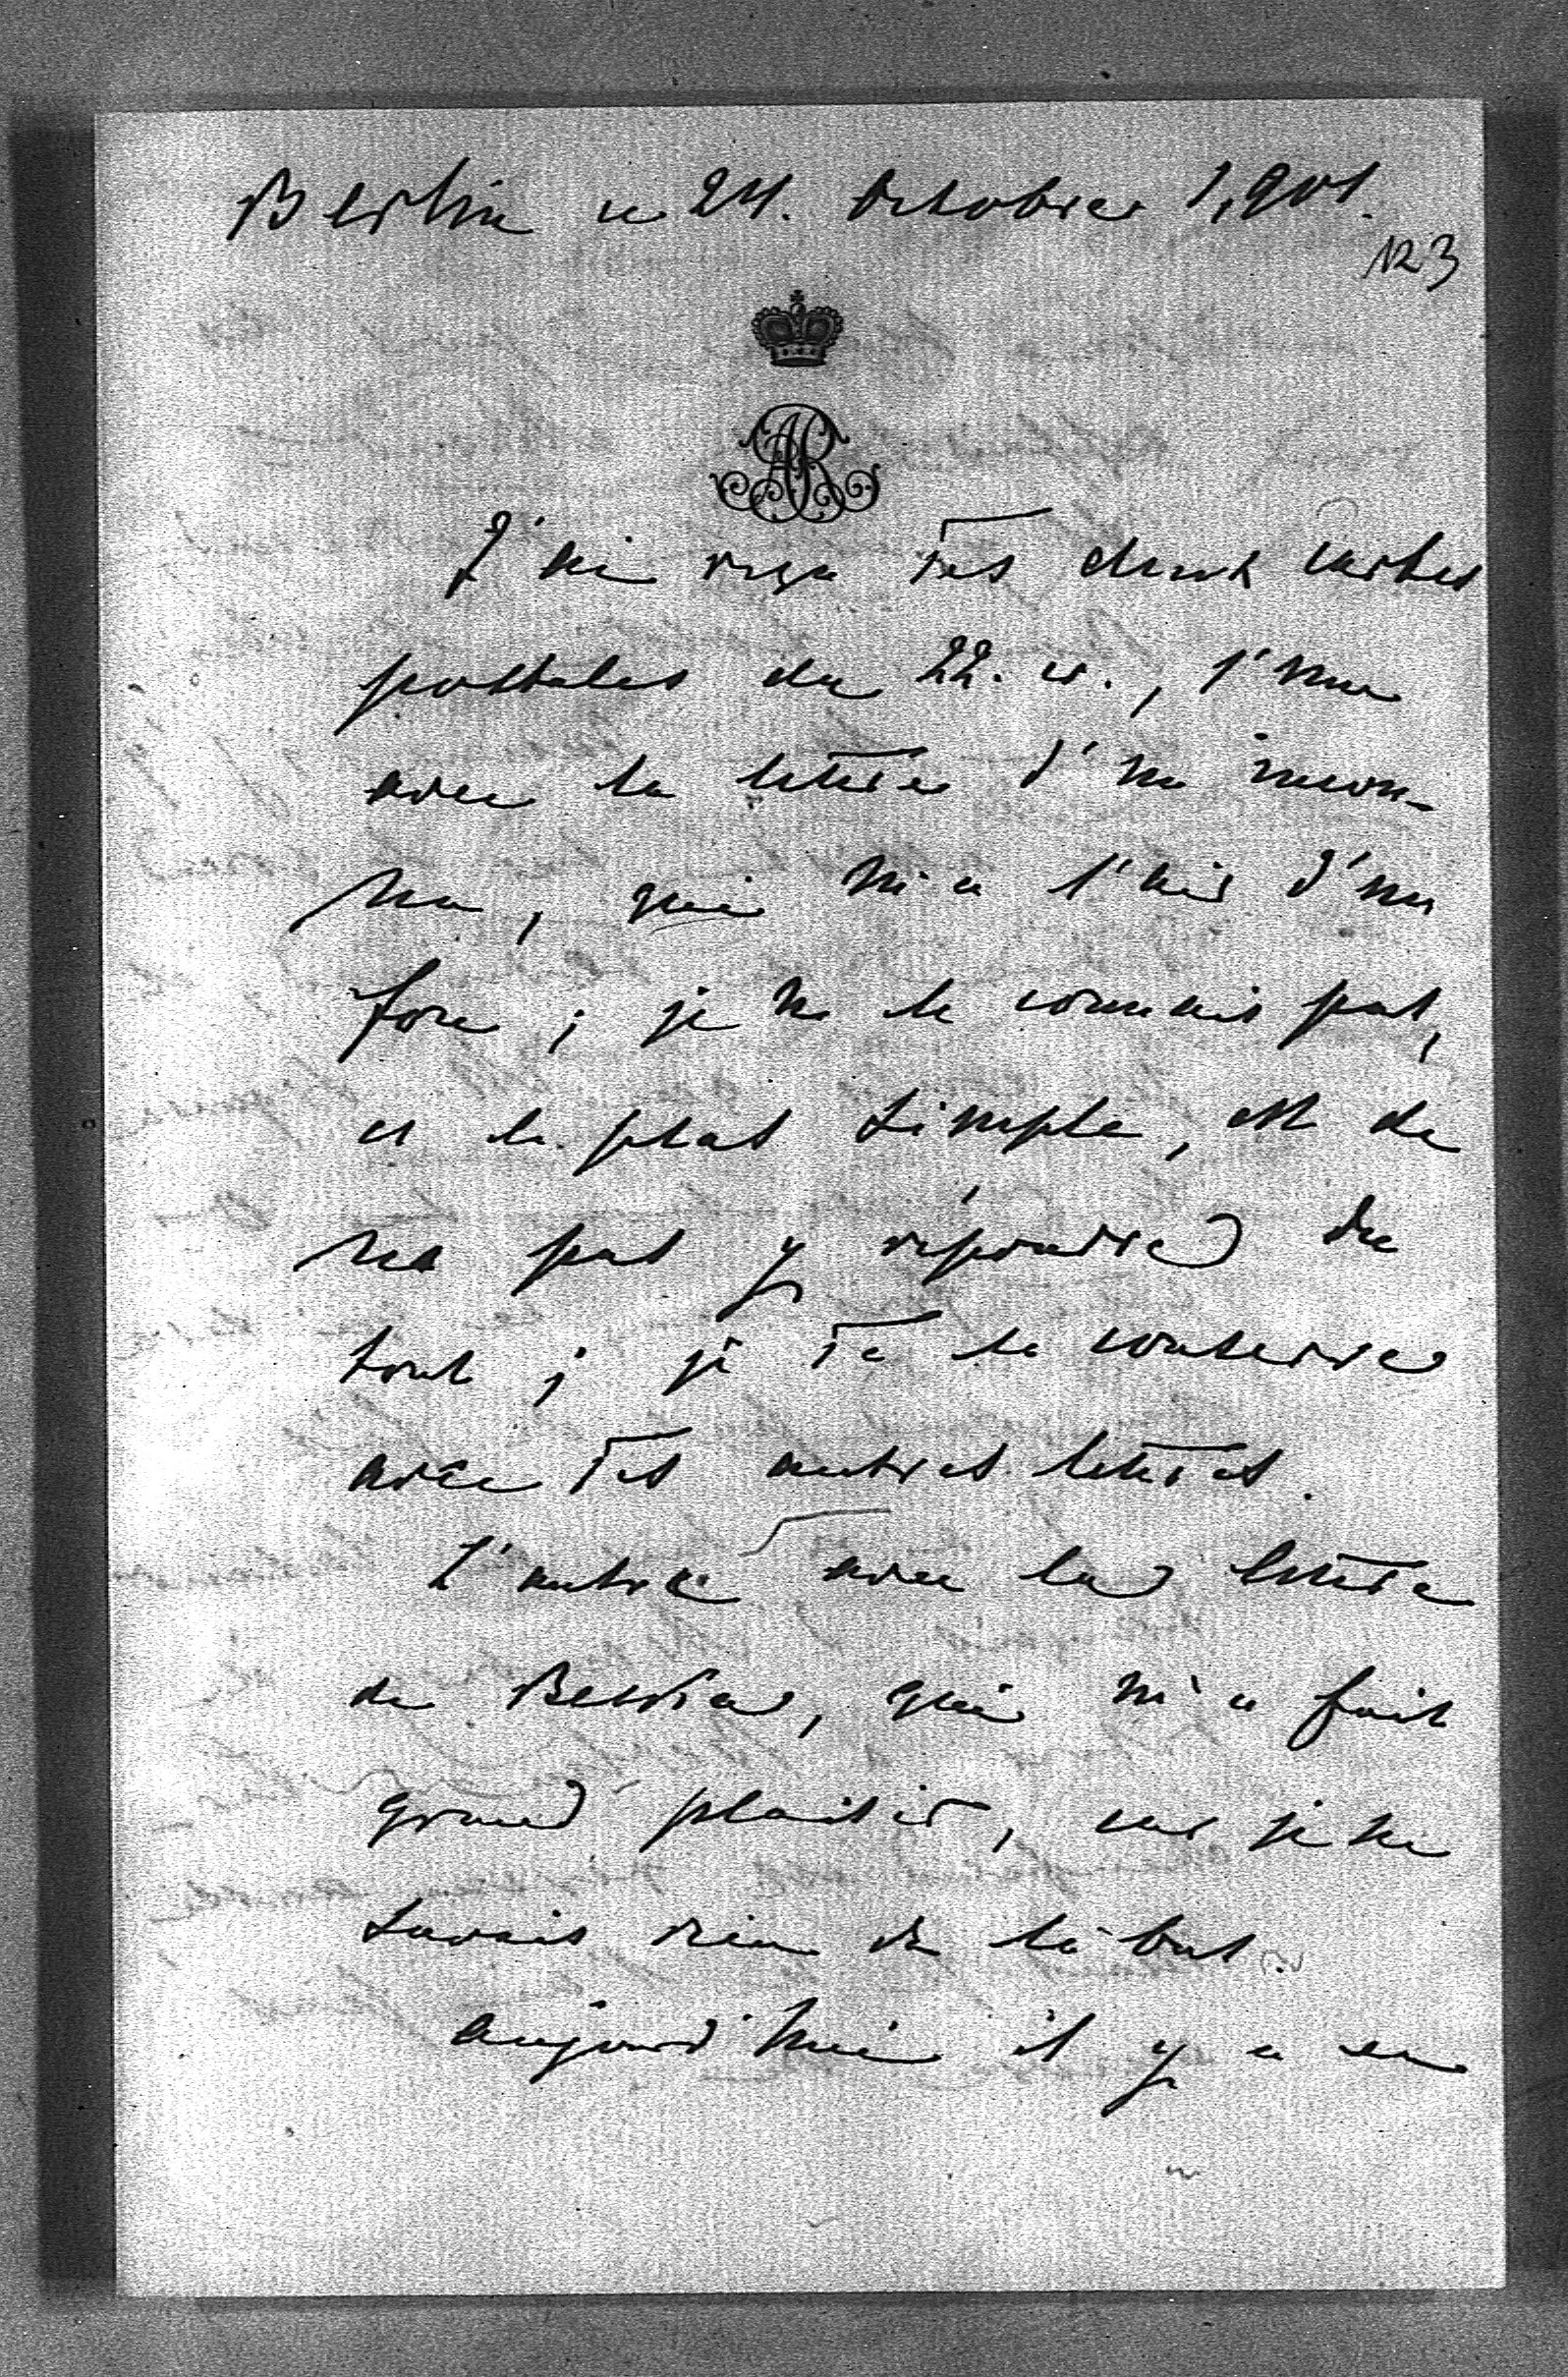 Berlin ce 24. Octobre 1,901.
123
AR
J'ai reçu tes deux cartes
postales du 22. cr., l'une
avec la lettre d'un incon-
nu, qui m'a l'air d'un
fou; je ne le connais pas,
et le plus simple, est de
ne pas y répondre du
tout; je te la conserve
avec tes autres lettres.
L'autre avec la lettre
de , qui m'a fait
grand plaisir, car je ne
savais rien de là bas.
Aujourd'hui il y a eu